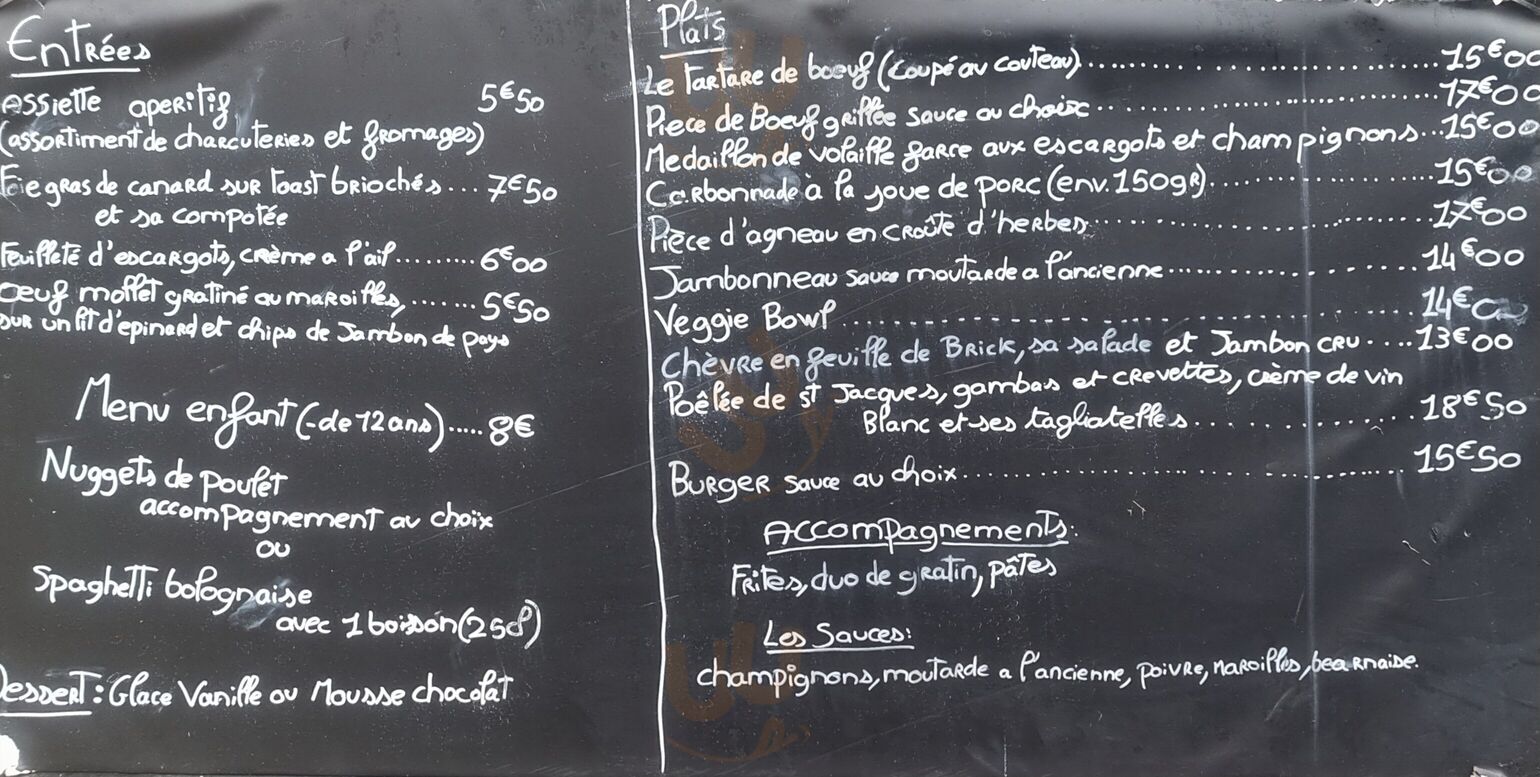 Entrées
Assiette aperitif 5€50
(assortiment de charcuteries et fromages)
Foie gras de canard sur toast briochés... 7€50
et sa compotée
Feuilleté d'escargots, crème a l'ail......... 6€00
œuf mollet gratiné au maroilles, ....... 5€50
sur un lit d'epinard et chips de Jambon de pays
Menu enfant (-de 12 ans)..... 8€
Nuggets de poulet
accompagnement au choix
ou
Spaghetti bolognaise
avec 1 boisson (25cl)
Dessert : Glace Vanille ou Mousse chocolat
Plats
Le Tartare de boeuf (coupé au couteau)........ 15€00
Piece de Boeuf grillée sauce au choix........ 17€00
Medaillon de volaille farce aux escargots et champignons... 15€00
Carbonnade à la joue de porc (env. 150gr)........ 15€00
Pièce d'agneau en croûte d'herbes........ 17€00
Jambonneau sauce moutarde a l'ancienne........ 14€00
Veggie Bowl........ 14€0
Chèvre en feuille de Brick, sa salade et Jambon cru..... 13€00
Poêlée de st Jacques, gambas et crevettes, crème de vin
Blanc et ses tagliatelles............ 18€50
Burger sauce au choix........ 15€50
Accompagnements:
Frites, duo de gratin, pâtes
Les Sauces:
champignons, moutarde a l'ancienne, poivre, maroilles, bearnaise.